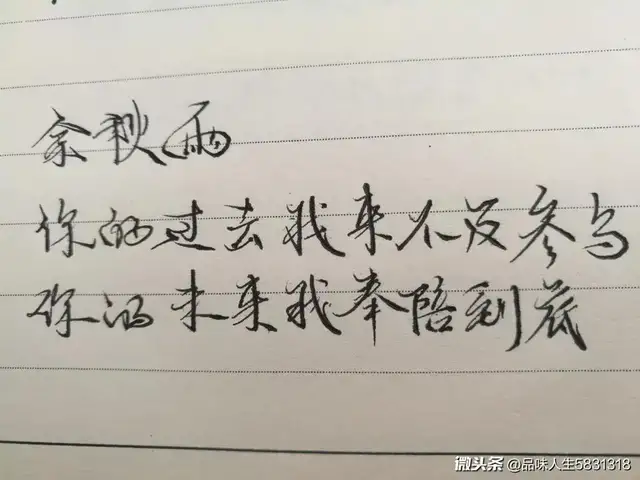 余秋雨
你的过去我来不及参与
你的未来我奉陪到底
微头条 @品味人生5831318